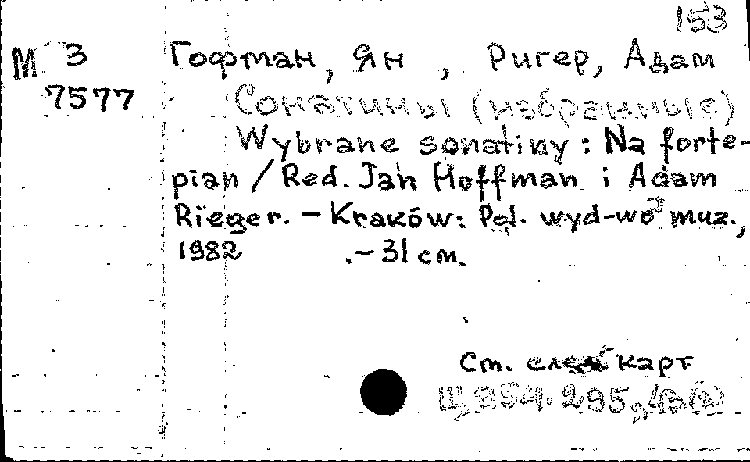 153
М 3 Гофман, Ян, Ригер, Адам
7577 Сонатины (избранные)
Wybrane sonatiny : Na forte-
pian / Red. Jan Hoffman i Adam
Rieger. – Kraków: Pol. wyd-wo muz.,
1982 .– 31 см.
См. след карт
Щ 954.295